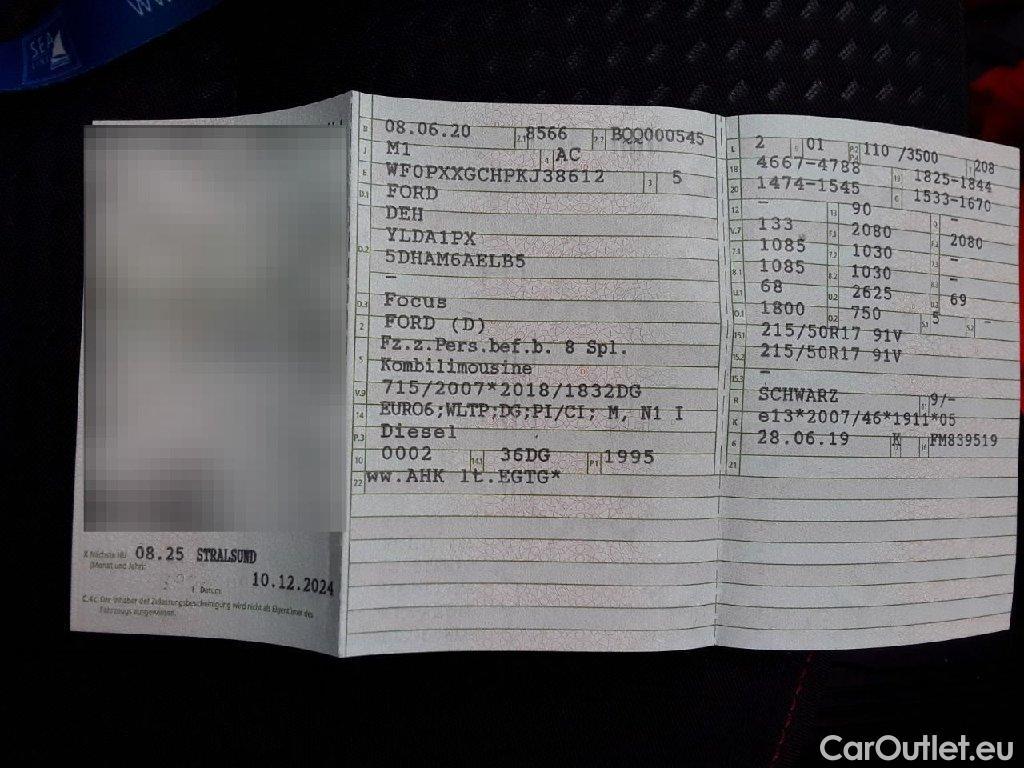 SEA
X Nächste HU 08.25 STRALSUND
(Monat und Jahr):
10.12.2024
I Datum:
C.4c: Der Inhaber der Zulassungsbescheinigung wird nicht als Eigentümer des
Fahrzeugs ausgewiesen.
B 08.06.20 2.1 8566 2.2 BQQ000545
J M1 4 AC
E WF0PXXGCHPKJ38612 3 5
D.1 FORD
DEH
YLDA1PX
D.2 5DHAM6AELB5
-
D.3 Focus
2 FORD (D)
Fz.z.Pers.bef.b. 8 Spl.
5 Kombilimousine
V.9 715/2007*2018/1832DG
14 EURO6;WLTP;DG;PI/CI; M, N1 I
P.3 Diesel
10 0002 14.1 36DG P.1 1995
22 ww.AHK lt.EGTG*
L 2 9 01 P.2 P.4 110 /3500 T 208
18 4667-4788 19 1825-1844
20 1474-1545 G 1533-1670
12 - 13 90 Q -
V.7 133 F.1 2080 F.2 2080
7.1 1085 7.2 1030 7.3 -
8.1 1085 8.2 1030 8.3 -
U.1 68 U.2 2625 U.3 69
O.1 1800 O.2 750 S.1 5 S.2 -
15.1 215/50R17 91V
15.2 215/50R17 91V
15.3 -
R SCHWARZ 9/-
K e13*2007/46*1911*05
6 28.06.19 17 K 16 FM839519
21
CarOutlet.eu